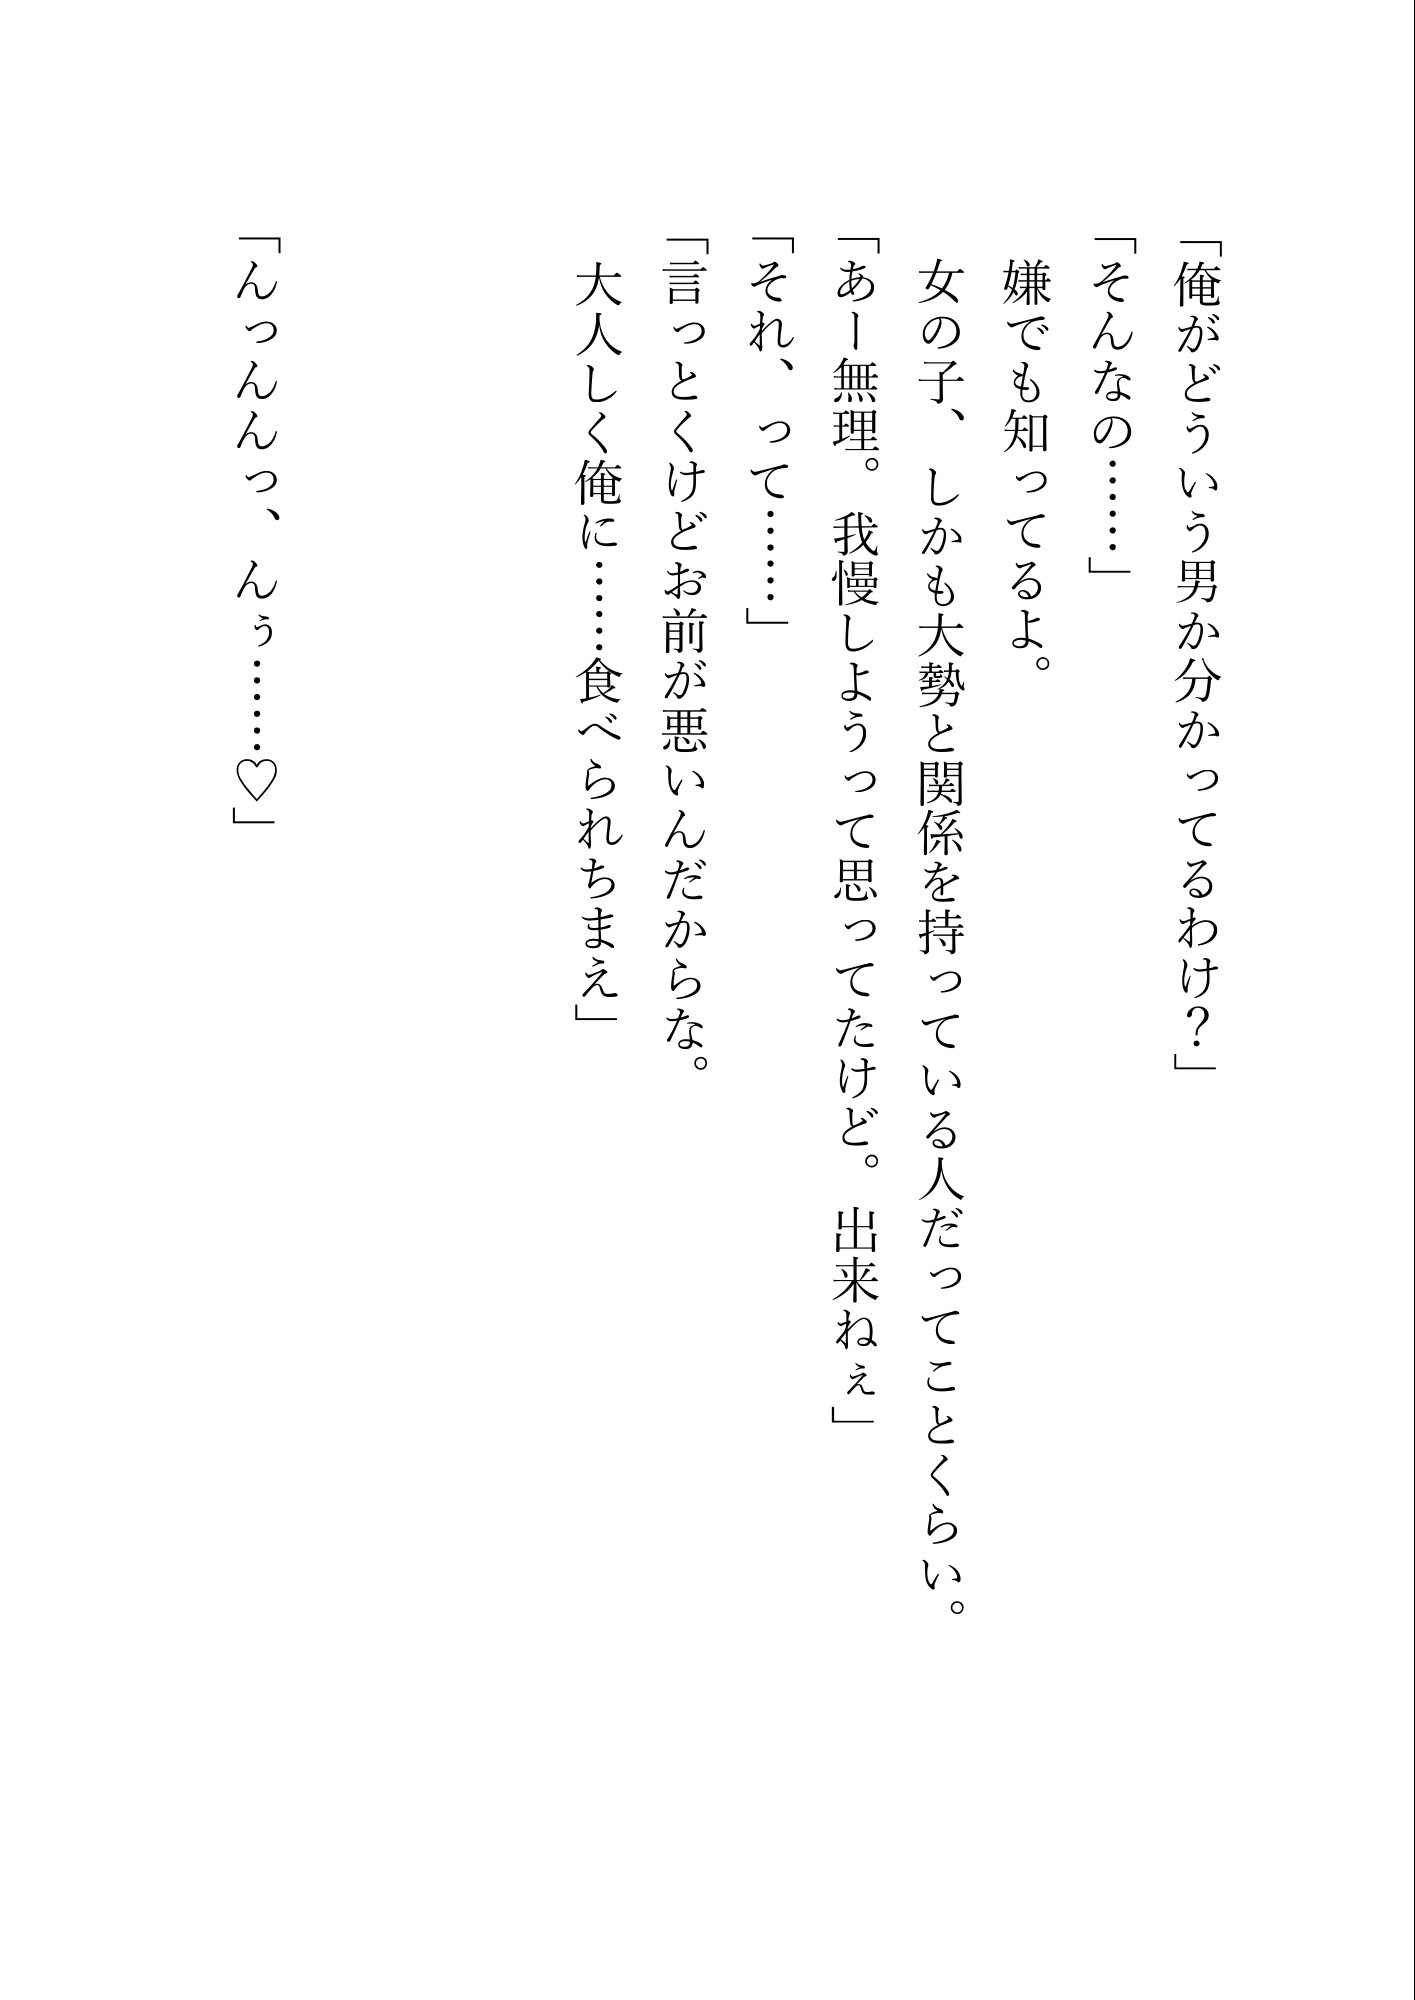 「俺がどういう男か分かってるわけ？」
「そんなの……」
　嫌でも知ってるよ。
　女の子、しかも大勢と関係を持っている人だってことくらい。
「あー無理。我慢しようって思ってたけど。出来ねぇ」
「それ、って……」
「言っとくけどお前が悪いんだからな。
　大人しく俺に……食べられちまえ」
「んっんんっ、んぅ……♡」